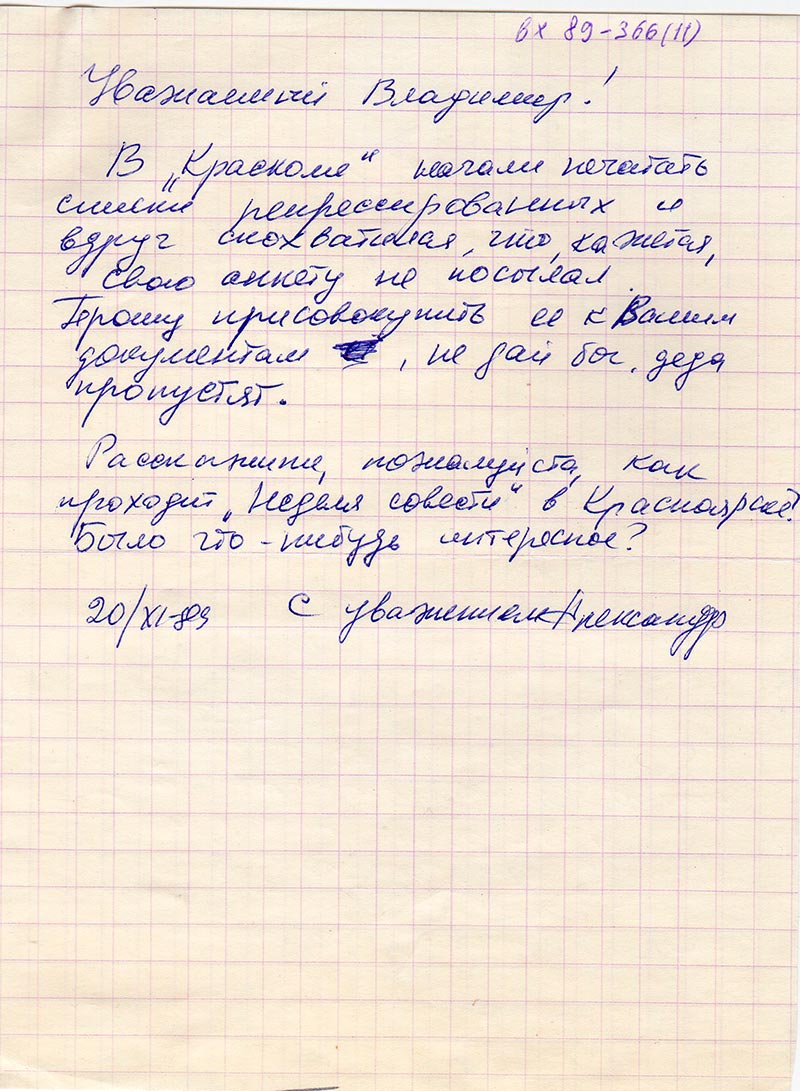 вх 89-366(11)
Уважаемый Владимир!
В „Краскоме" начали печатать
списки репрессированных и
вдруг спохватился, что, кажется,
свою анкету не посылал.
Прошу присовокупить ее к Вашим
документам , не дай бог, деда
пропустят.
Расскажите, пожалуйста, как
проходит „Неделя совести" в Красноярске?
Было что-нибудь интересное?
20/XI-89 С уважением Александр